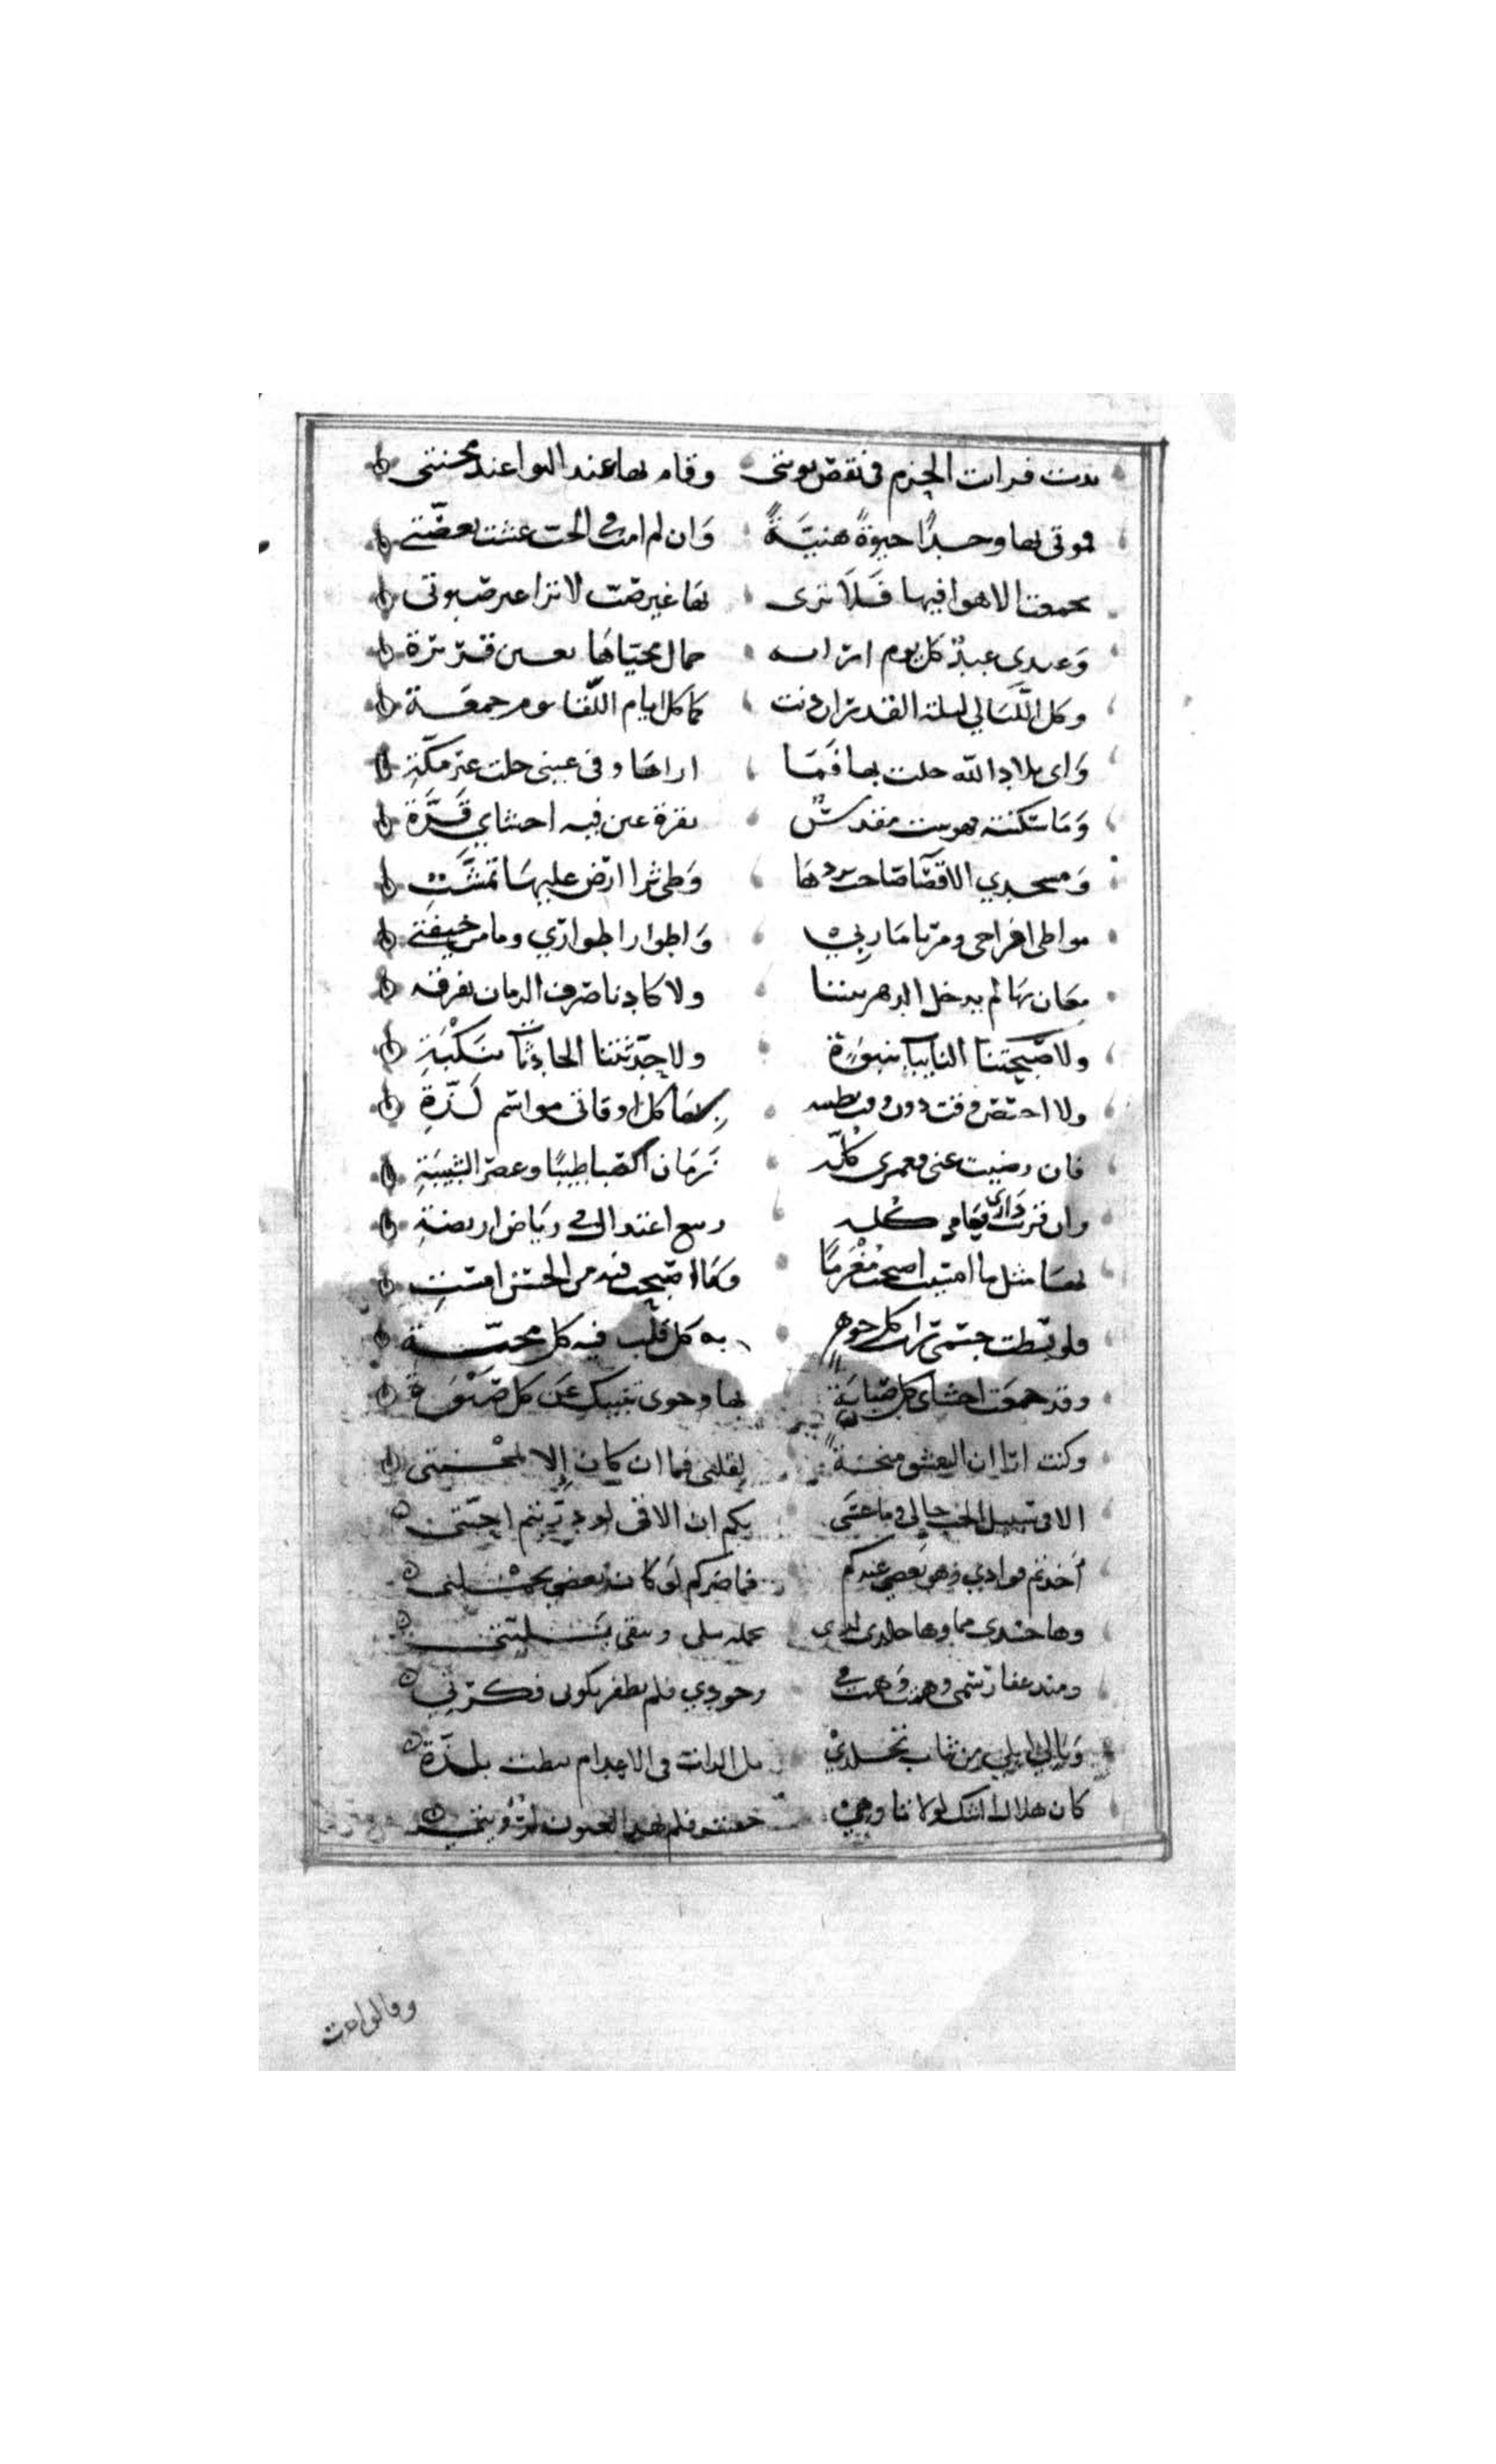 بدت فرات الحزم في نقض توبتي وقام بها عند النها عند محنتي
فموتي بها وجدا حيوة هنيّة وان لم امت في الحب عشت بغصّتي
تجمعت الاهوا فيها فلا ترى بها غير صب لا ترا غير صبوتي
وعندي عيد كل يوم ارا به جمال محيّاها بعين قريرة
وكل اللّيالي ليلة القدر ان دنت كما كل ايام اللّقا يوم جمعة
واي بلاد الله حلت بها فما اراها وفي عيني حلت غير مكّة
وما سكنته فهو بيت مقدس بقرة عين فيه احشاي قرّة
ومسجدي الاقصا مساحب بردها وطي ثرا ارض عليها تمشّت
مواطن افراحي ومربا ماربي واطوار اوطاري ومامن خيفتي
مغان بها لم يدخل الدهر بيننا ولا كادنا صرف الزمان بفرقة
ولا صبّحتنا النايبات بنبوة ولا حدّثتنا الحادثات بنكبة
ولا اختص وقت دون وقت بطيبه بها كل اوقاتي مواسم لذّة
فان رضيت عني فعمري كلّه زمان الصبا طيبا وعصر الشبيبة
وان قربت داري فعامي كله ربيع اعتدال في رياض اريضة
بها مثل ما امسيت اصبحت مغرما وما اصبحت فيه من الحسن امست
فلو بسطت جسمي ترات كل جوهر به كل قلب فيه كل محبّة
وقد جمعت احشاي كل صبابة بها وجوى ينبيك عن كل صبوة
وكنت ارا ان العشق منحة لقلبي فما ان كان إلا لمحنتي
الا في سبيل الحب حالي وما عسى بكم ان الاقي لو دريتم احبّتي
أخذتم فوادي وهو بعضي عندكم فما ضركم لو كان بعضي بجملتي
وها جسدي مما وها جلدي لذي تحمله يبلى وتبقى بليّتي
ومنذ عفا رسمي وهمت وهمت في وجودي فلم يظفر بكوني فكرتي
وبالي ابلي من ثياب تجلدي بل الذات في الاعدام نيطت بلذّة
كان هلال الشك لولا تاوهي خفيت فلم تهد العيون لرؤيتي
وقالوا جرت